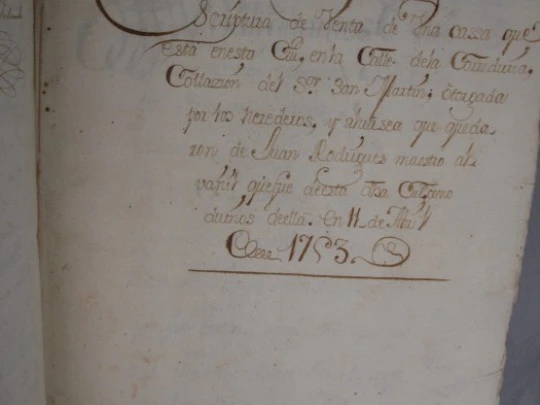 Scriptura de Venta de Una cassa que
està enesta Ciu, en la Calle dela
Collazion del Sor. San Martin; otorgada
por los herederos, y alvasea que queda
ron de Juan Rodrigues maestro al
vañil quefue deesta dha Ciu, como
dueños deella. en 11 de Abril
de 1753.